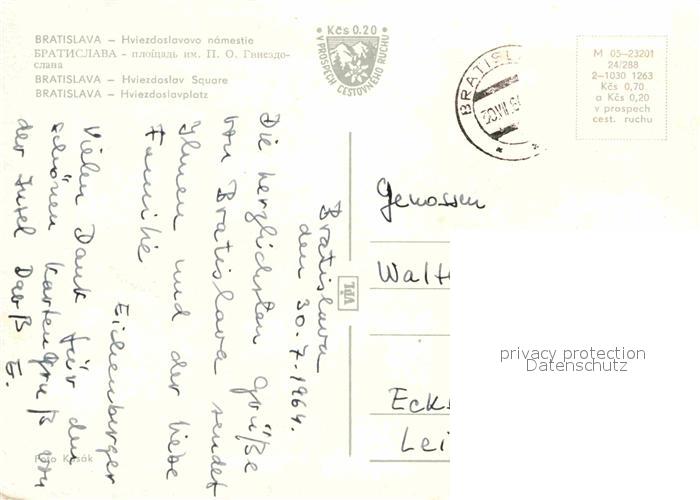 BRATISLAVA – Hviezdoslavovo námestie
БРАТИСЛАВА – площадь им. П. О. Гвиездо-
слава
BRATISLAVA – Hviezdoslav Square
BRATISLAVA – Hviezdoslavplatz
• Kčs 0.20 •
V PROSPECH CESTOVNÉHO RUCHU
BRATISL
M 05–23201
24/288
2–1030 1263
Kčs 0,70
a Kčs 0,20
v prospech
cest. ruchu
Bratislava
den 30.7.1964.
Die herzlichsten Grüße
von Bratislava sendet
Ihnen und der liebe
Familie
Eichenberger
Vielen Dank für den
schönen Kartengruß von
der Insel Darß
E.
VPL
Genossen
Walt
Eck
Lei
privacy protection
Datenschutz
Foto Kusák